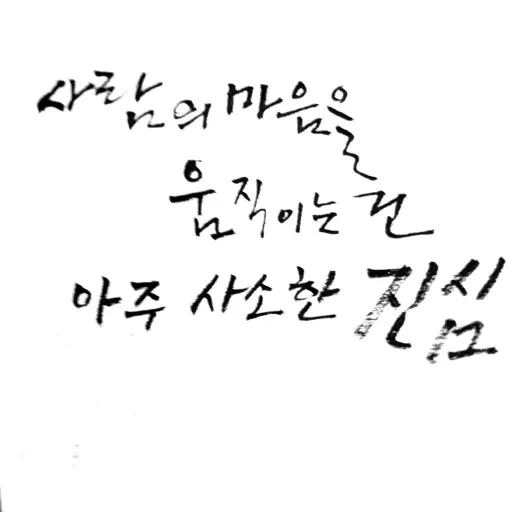 사람의 마음을
움직이는 건
아주 사소한 진심